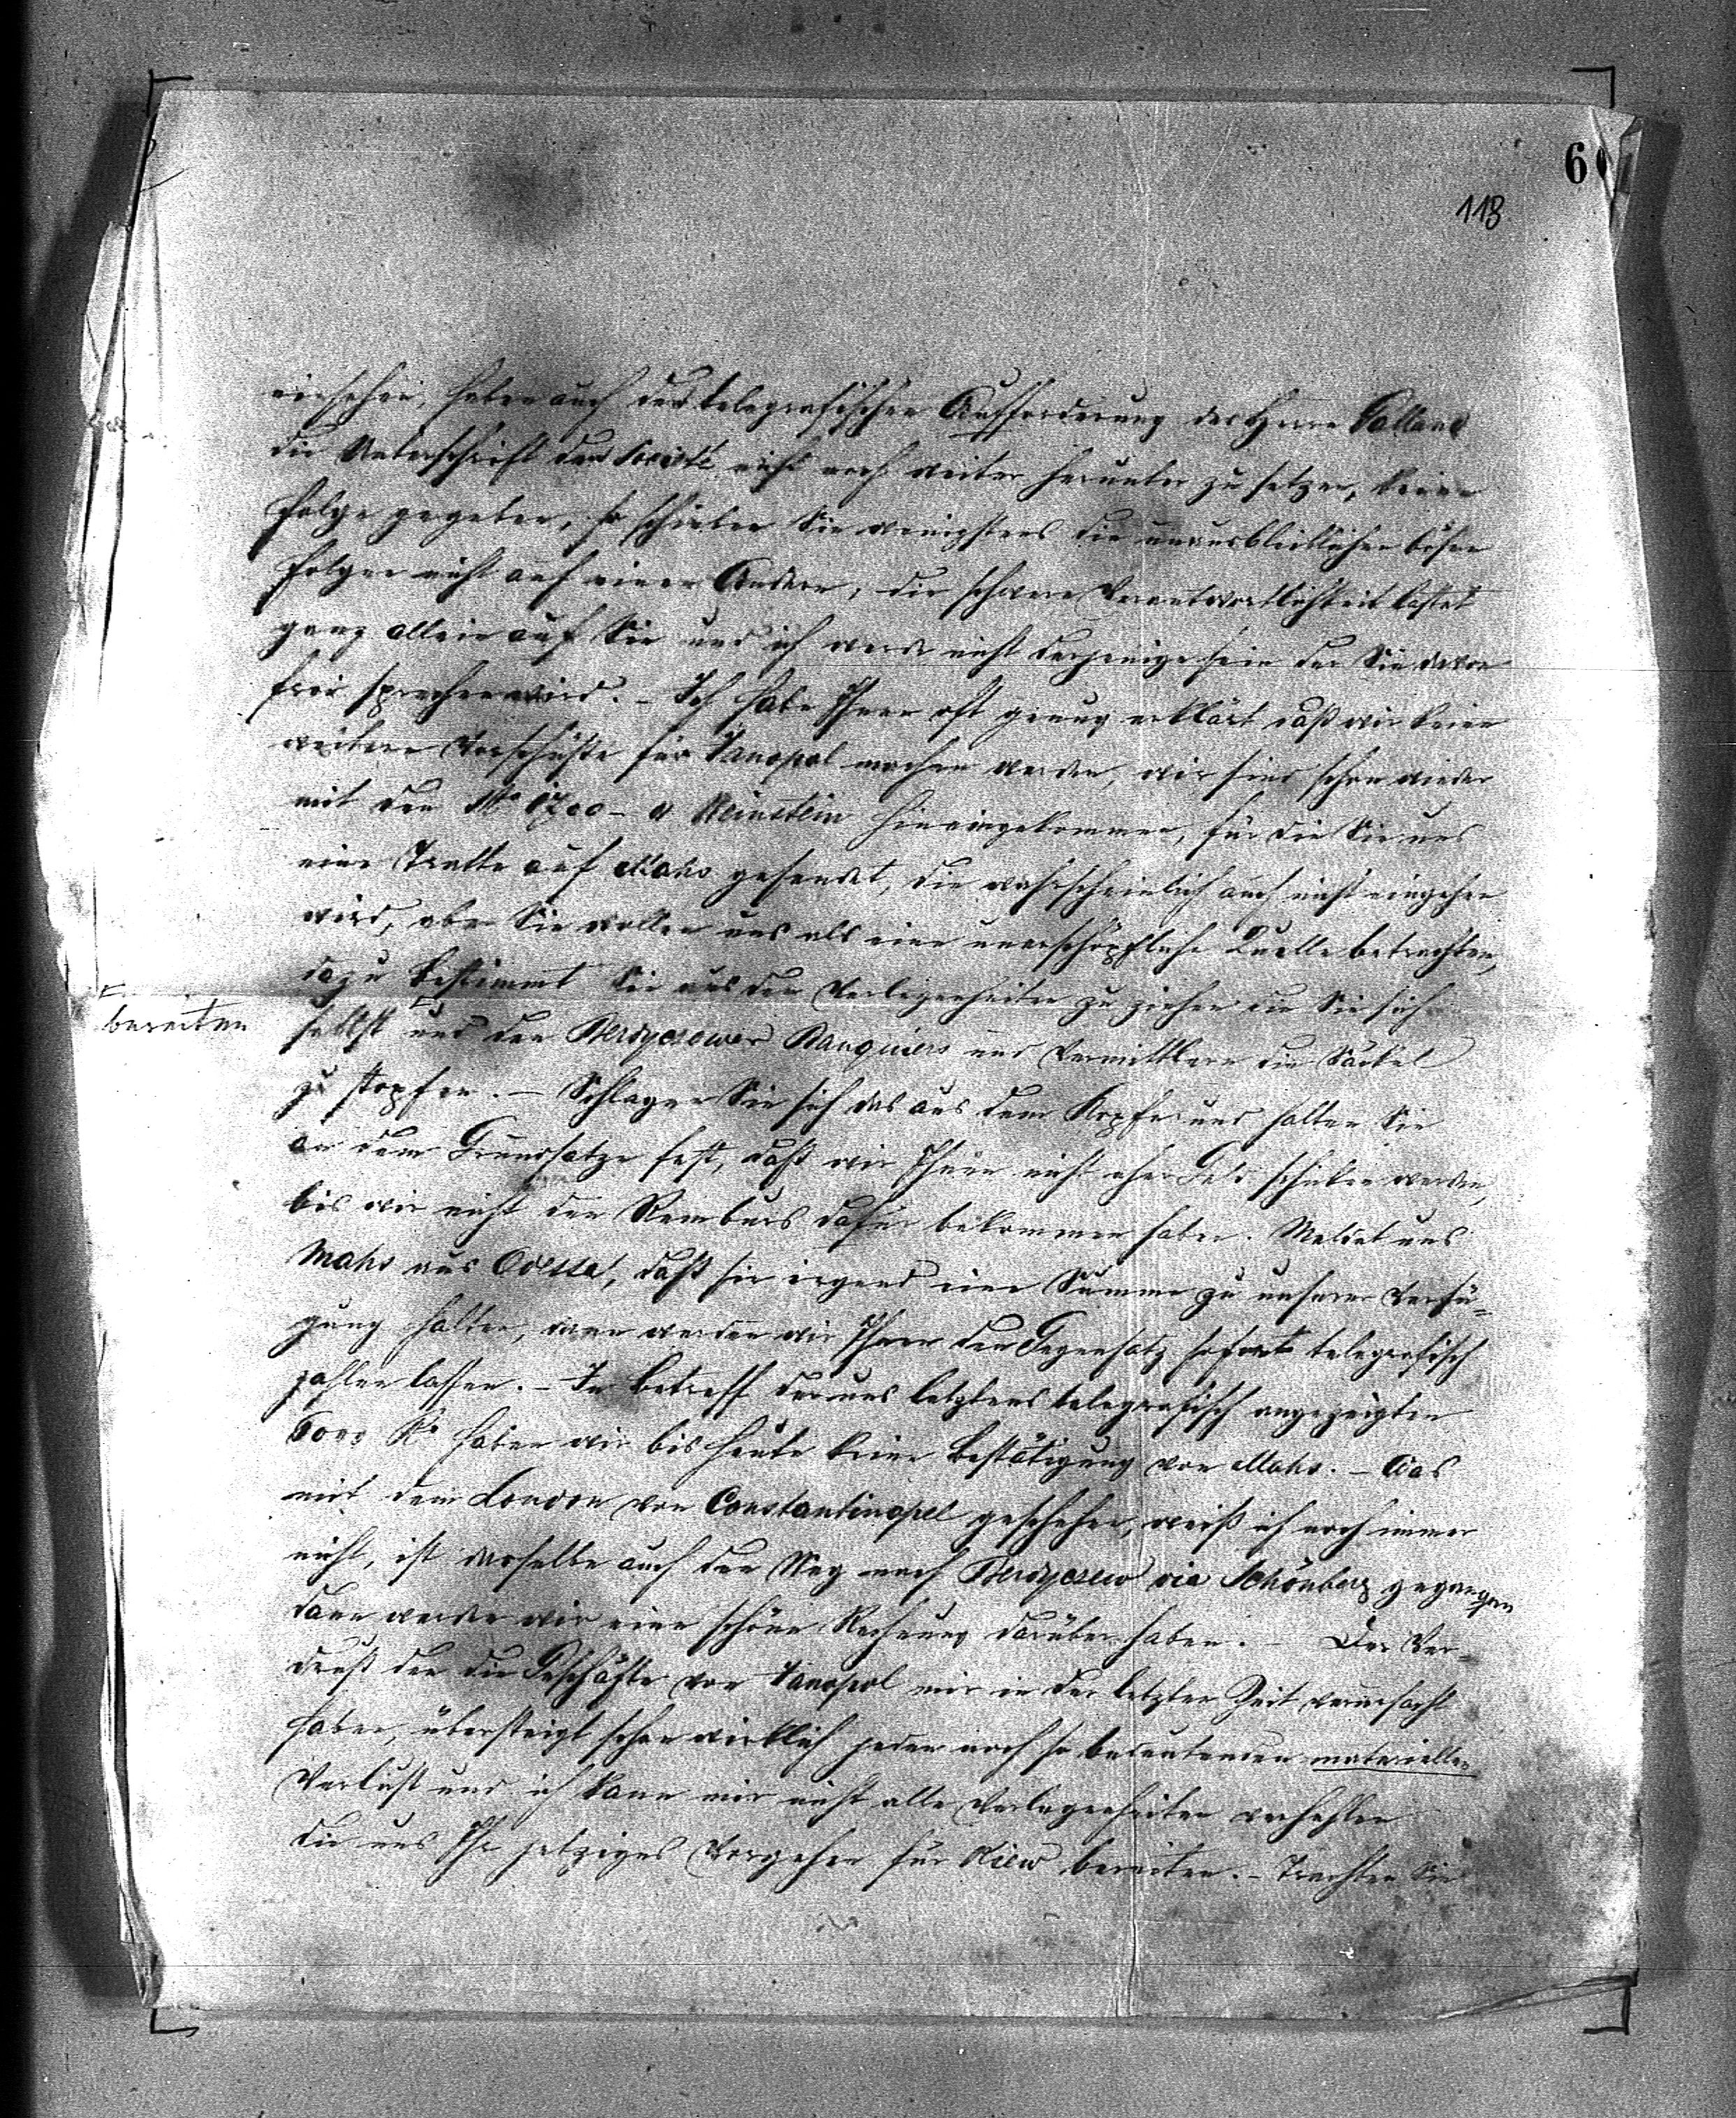 6
118
einsehen, haben auch der telegrafischen Aufforderung des Herrn Galland
die Unterschrift der Société nicht noch weiter herunter zu setzen, keine
Folge gegeben, so schieben Sie wenigstens die unausbleiblichen bösen
Folgen nicht auf einen Andern, die schwere Verantwortlichkeit lastet
ganz allein auf Sie und ich werde nicht derjenige sein der Sie davon
frei sprechen wird. – Ich habe Ihnen oft genug erklärt daß wir keine
weitere Vorschüße für Janopol machen werden, wir sind schon wieder
mit den Weinstein hineingekommen, für die Sie uns
eine Tratte auf Mahs gesandt, die wahrscheinlich auch nicht eingehen
wird, aber Sie wollen uns als eine unerschöpfliche Quelle betrachten,
dazu bestimmt Sie aus den Verlegenheiten zu ziehen die Sie sich
bereiten
selbst und den Berdyczewer Banquiers und Vermittlern die Säckel
zu stopfen. – Schlagen Sie sich das aus dem Kopfe und halten Sie
an dem Grundsatze fest, daß wir Ihnen nicht eher Geld schicken werden,
bis wir nicht den Rembours dafür bekommen haben. Meldet uns
Mahs aus Odessa, daß sie irgend eine Summe zu unserer Verfü-
gung halten, dann werden wir Ihnen den Gegensatz sofort telegrafisch
zahlen lassen. – In Betreff der uns letztens telegrafisch angezeigten
Ro haben wir bis heute keine Bestätigung von Mahs. – Was
mit dem London von Constantinopel geschehen, weiß ich noch immer
nicht, ist derselbe auch den Weg nach Berdyczew via Schönberg gegangen
dann werden wir eine schöne Rechnung darüber haben. – Der Ver-
druß den die Geschäfte von Janopol mir in der letzten Zeit verursacht
haben, übersteigt schon wirklich jeden noch so bedeutenden materiellen
Verlust und ich kann mir nicht alle Verlegenheiten verhehlen
die uns Ihr jetziges Vorgehen für Kiew bereiten. – Trachten Sie